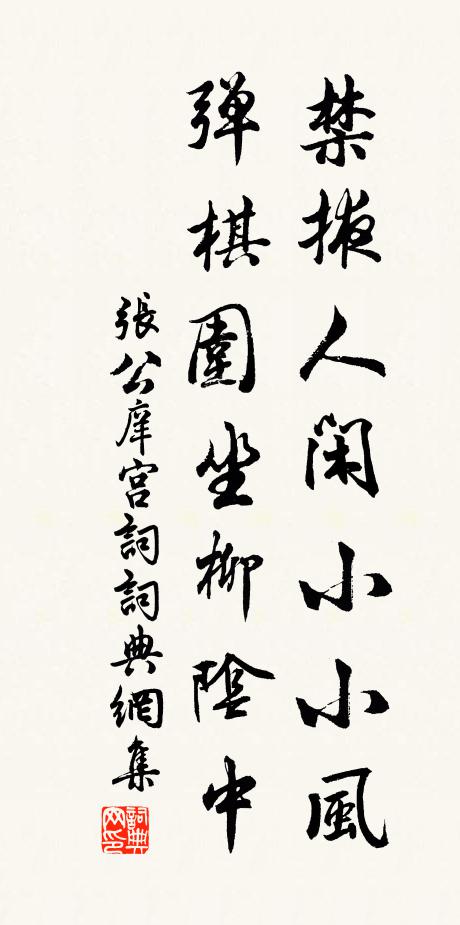 禁掖人閑小小風
弹棋圍坐柳陰中
張公庠宫詞詞典網集
詞典
网印